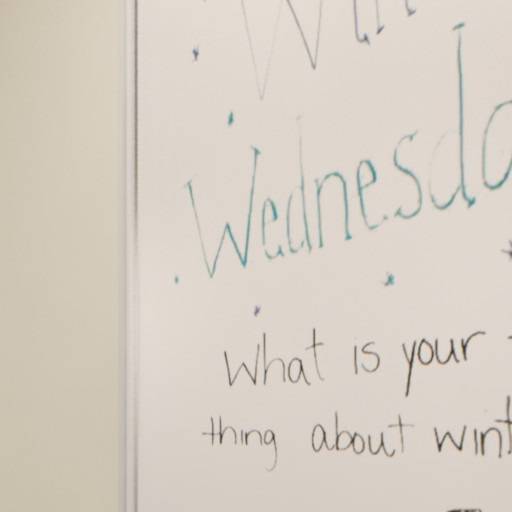 Wednesda
What is your
thing about wint